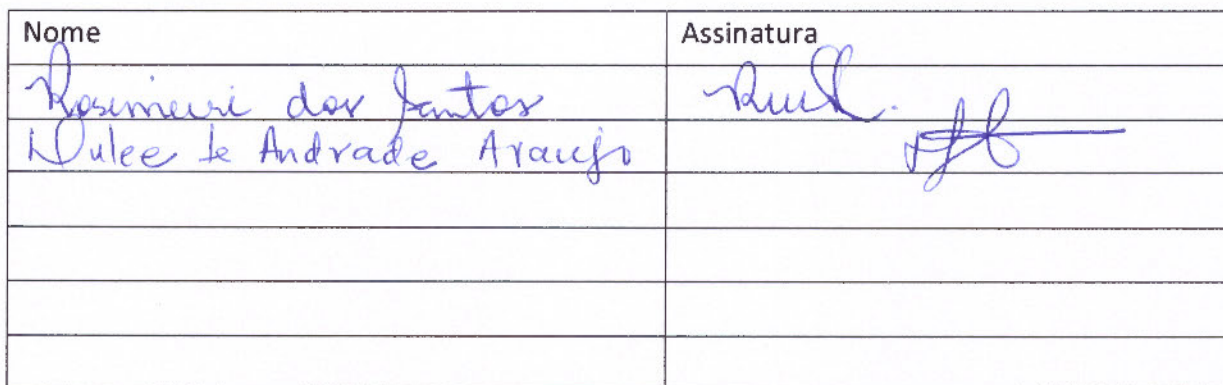 Nome Assinatura
Rosimeiri dos Santos
Dulce de Andrade Araujo